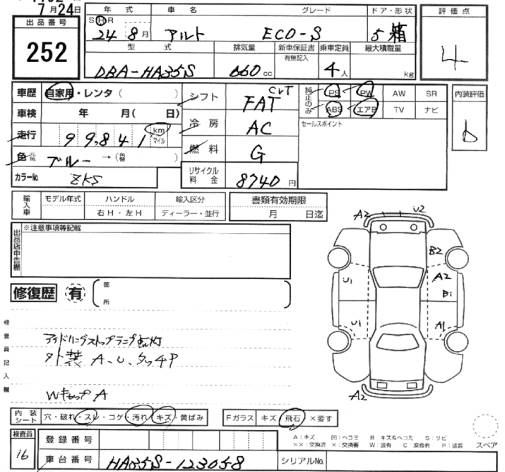 7月24日
出品番号
252
年式 車名 グレード ドア・形状
S H R
24年 8月 アルト ECO-S 5 箱
型式 排気量 新車保証書 乗車定員 最大積載量
有無記入
DBA-HA35S 660cc 4人 kg
評価点
4
車歴 自家用・レンタ( )
車検 年 月( 日)
走行 99,841 km マイル
色 ブルー →(替)
カラーNo ZKS
シフト FAT CVT
冷房 AC
燃料 G
リサイクル料金 8740円
純正のみ PS PW AW SR
ABS エアB TV ナビ
セールスポイント
内装評価
b
輸入車 モデル年式 ハンドル 輸入区分
右H・左H ディーラー・並行
書類有効期限
月 日迄
出品店申告欄
※注意事項等記載
修復歴 有 箇所
検査員記入欄
アイドリングストップランプ点灯
外装 A.U.タッチP
WキャップA
A2 U2
B2
A2
U1 B1
U1 A1
A2
内装シート 穴・破れ・スレ・コゲ・汚れ・キズ・黄ばみ
Fガラス キズ・飛石・X要す
スペア
検査員
16
登録番号
車台番号 HA35S-123058
シリアルNo.